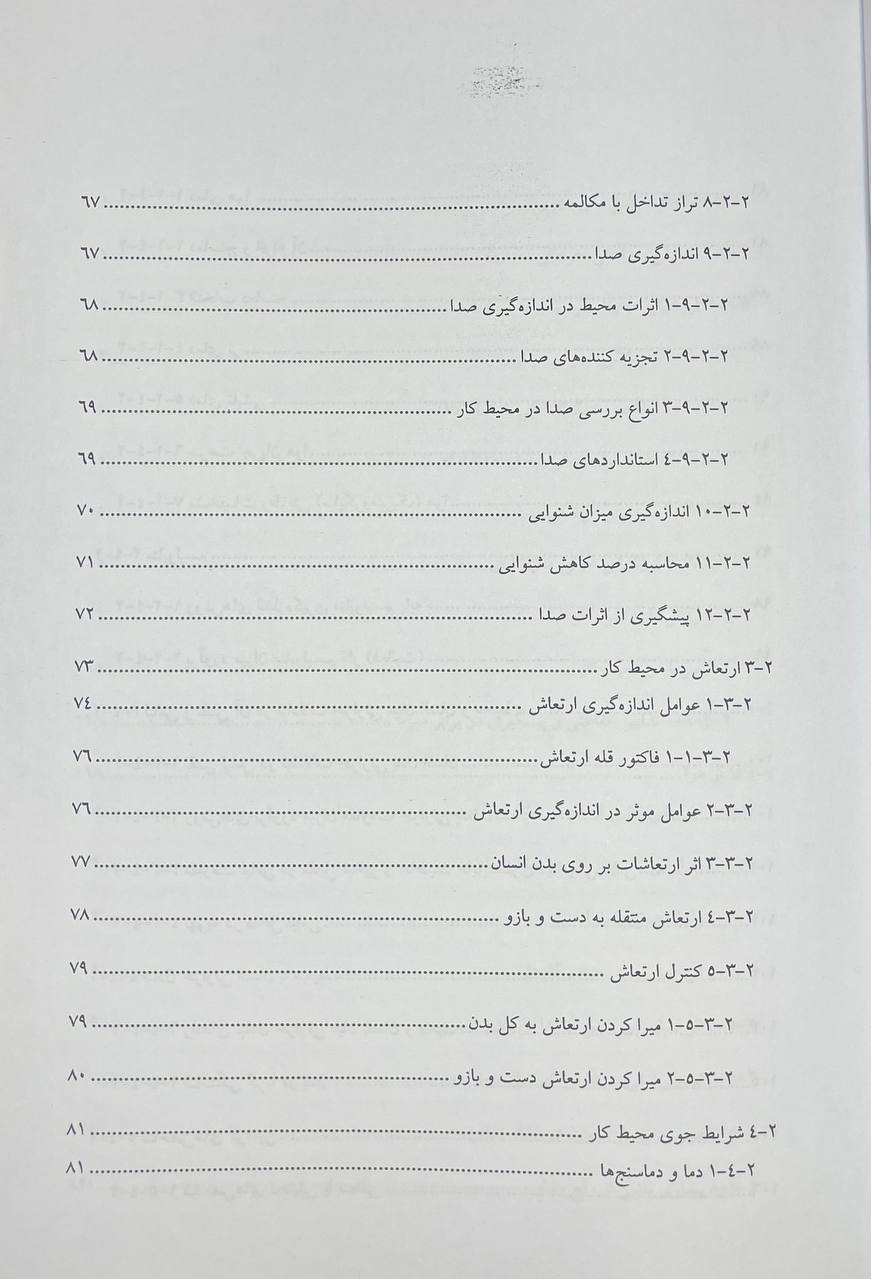 ۲-۲-۸ تراز تداخل با مکالمه ........ ٦٧
۲-۲-۹ اندازه‌گیری صدا ........ ٦٧
۲-۲-۹-۱ اثرات محیط در اندازه‌گیری صدا ........ ٦٨
۲-۲-۹-۲ تجزیه کننده‌های صدا ........ ٦٨
۲-۲-۹-۳ انواع بررسی صدا در محیط کار ........ ٦٩
۲-۲-۹-٤ استانداردهای صدا ........ ٦٩
۲-۲-۱۰ اندازه‌گیری میزان شنوایی ........ ٧٠
۲-۲-۱۱ محاسبه درصد کاهش شنوایی ........ ٧١
۲-۲-۱۲ پیشگیری از اثرات صدا ........ ٧٢
۲-۳ ارتعاش در محیط کار ........ ٧٣
۲-۳-۱ عوامل اندازه‌گیری ارتعاش ........ ٧٤
۲-۳-۱-۱ فاکتور قله ارتعاش ........ ٧٦
۲-۳-۲ عوامل موثر در اندازه‌گیری ارتعاش ........ ٧٦
۲-۳-۳ اثر ارتعاشات بر روی بدن انسان ........ ٧٧
۲-۳-٤ ارتعاش منتقله به دست و بازو ........ ٧٨
۲-۳-٥ کنترل ارتعاش ........ ٧٩
۲-۳-٥-۱ میرا کردن ارتعاش به کل بدن ........ ٧٩
۲-۳-٥-۲ میرا کردن ارتعاش دست و بازو ........ ٨٠
۲-٤ شرایط جوی محیط کار ........ ٨١
۲-٤-۱ دما و دماسنج‌ها ........ ٨١